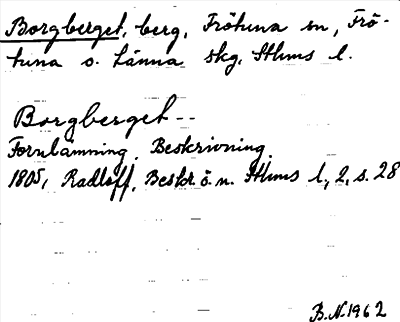 Borgberget, berg, Frötuna sn, Frö-
tuna o. Länna skg, Sthms l.
Borgberget --
Fornlämning. Beskrivning.
1805, Radloff, Beskr. ö. n. Sthms l, 2, s. 28
B.N. 1962